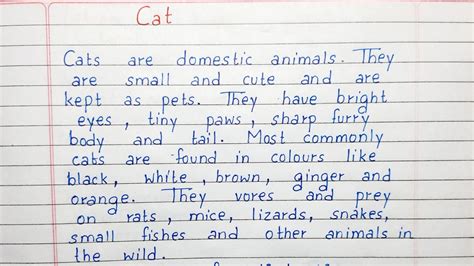 Cat
Cats are domestic animals. They
are small and cute and are
kept as pets. They have bright
eyes, tiny paws, sharp furry
body and tail. Most commonly
cats are found in colours like
black, white, brown, ginger and
orange. They vores and prey
on rats, mice, lizards, snakes,
small fishes and other animals in
the wild.